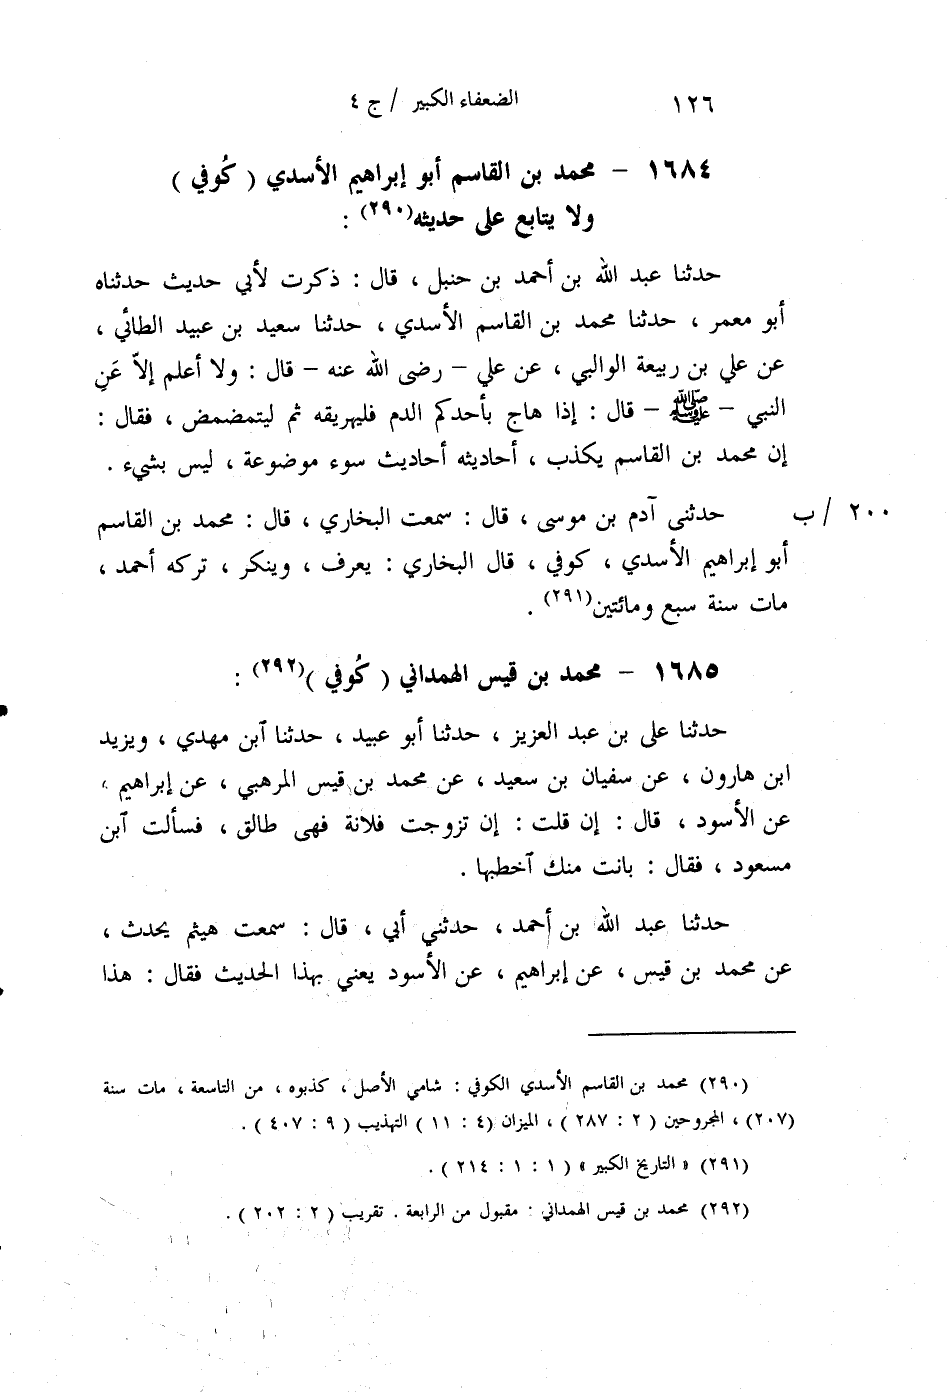 ١٢٦ الضعفاء الكبير / ج ٤
١٦٨٤ – محمد بن القاسم أبو إبراهيم الأسدي ( كُوفي )
ولا يتابع على حديثه(٢٩٠) :
حدثنا عبد الله بن أحمد بن حنبل ، قال : ذكرت لأبي حديث حدثناه
أبو معمر ، حدثنا محمد بن القاسم الأسدي ، حدثنا سعيد بن عبيد الطائي ،
عن علي بن ربيعة الوالبي ، عن علي – رضى الله عنه – قال : ولا أعلم إلاّ عَنِ
النبي – ﷺ – قال : إذا هاج بأحدكم الدم فليهريقه ثم ليتمضمض ، فقال :
إن محمد بن القاسم يكذب ، أحاديثه أحاديث سوء موضوعة ، ليس بشيء .
٢٠٠ / ب حدثنى آدم بن موسى ، قال : سمعت البخاري ، قال : محمد بن القاسم
أبو إبراهيم الأسدي ، كوفي ، قال البخاري : يعرف ، وينكر ، تركه أحمد ،
مات سنة سبع ومائتين(٢٩١) .
١٦٨٥ – محمد بن قيس الهمداني ( كُوفي )(٢٩٢) :
حدثنا على بن عبد العزيز ، حدثنا أبو عبيد ، حدثنا آبن مهدي ، ويزيد
ابن هارون ، عن سفيان بن سعيد ، عن محمد بن قيس المرهبي ، عن إبراهيم ،
عن الأسود ، قال : إن قلت : إن تزوجت فلانة فهى طالق ، فسألت آبن
مسعود ، فقال : بانت منك آخطبها .
حدثنا عبد الله بن أحمد ، حدثني أبي ، قال : سمعت هيثم يحدث ،
عن محمد بن قيس ، عن إبراهيم ، عن الأسود يعني بهذا الحديث فقال : هذا
(٢٩٠) محمد بن القاسم الأسدي الكوفي : شامي الأصل ، كذبوه ، من التاسعة ، مات سنة
(٢٠٧) ، المجروحين ( ٢ : ٢٨٧ ) ، الميزان (٤ : ١١ ) التهذيب ( ٩ : ٤٠٧ ) .
(٢٩١) « التاريخ الكبير » ( ١ : ١ : ٢١٤ ) .
(٢٩٢) محمد بن قيس الهمداني : مقبول من الرابعة . تقريب ( ٢ : ٢٠٢ ) .